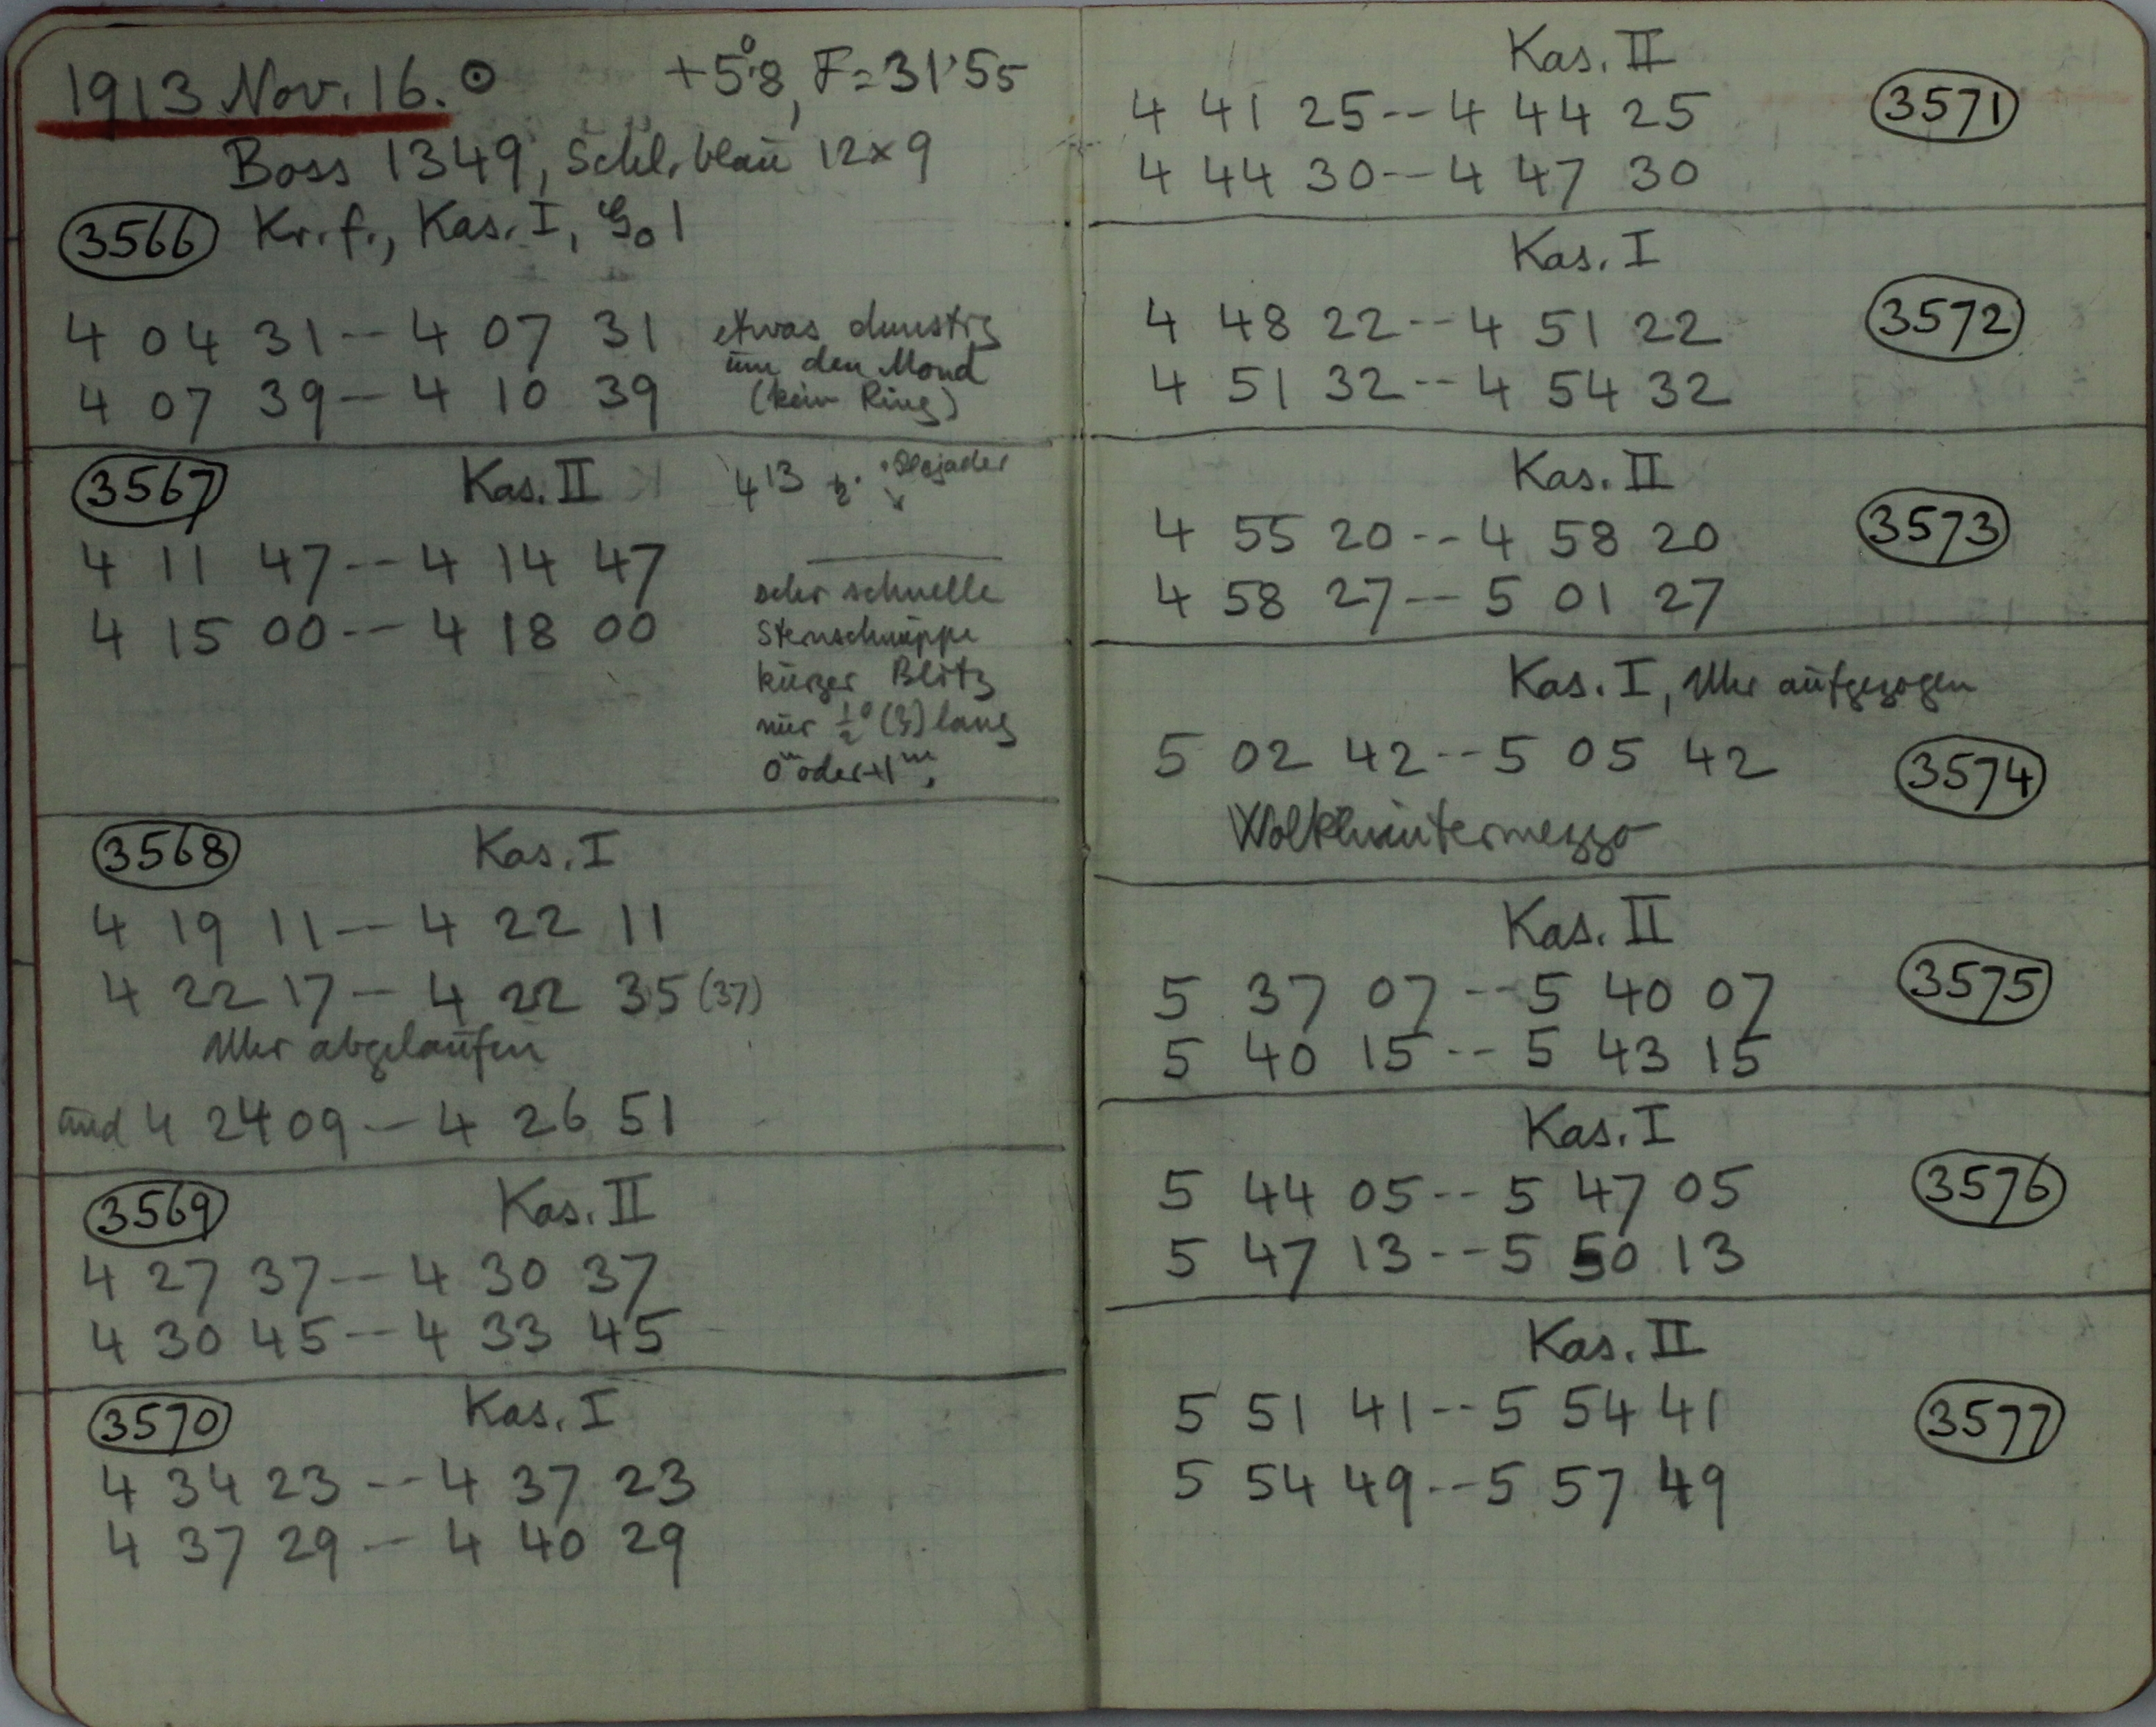 1913 Nov. 16. ☉ +5°.8, F=31'55
Boss 1349, Schl. blau 12×9
3566 Kr.f., Kas. I, 1
4 04 31 -- 4 07 31 etwas dunstig
um den Mond
4 07 39 -- 4 10 39 (kein Ring)
3567 Kas. II 4 13 Plejaden
4 11 47 -- 4 14 47
4 15 00 -- 4 18 00
sehr schnelle
Sternschnuppe
kurzer Blitz
nur ½° (?) lang
0m oder +1m.
3568 Kas. I
4 19 11 -- 4 22 11
4 22 17 -- 4 22 35 (37)
Uhr abgelaufen
und 4 24 09 -- 4 26 51
3569 Kas. II
4 27 37 -- 4 30 37
4 30 45 -- 4 33 45
3570 Kas. I
4 34 23 -- 4 37 23
4 37 29 -- 4 40 29
Kas. II
4 41 25 -- 4 44 25 3571
4 44 30 -- 4 47 30
Kas. I
4 48 22 -- 4 51 22 3572
4 51 32 -- 4 54 32
Kas. II
4 55 20 -- 4 58 20 3573
4 58 27 -- 5 01 27
Kas. I, Uhr aufgezogen
5 02 42 -- 5 05 42 3574
Wolkenintermezzo
Kas. II
5 37 07 -- 5 40 07 3575
5 40 15 -- 5 43 15
Kas. I
5 44 05 -- 5 47 05 3576
5 47 13 -- 5 50 13
Kas. II
5 51 41 -- 5 54 41 3577
5 54 49 -- 5 57 49